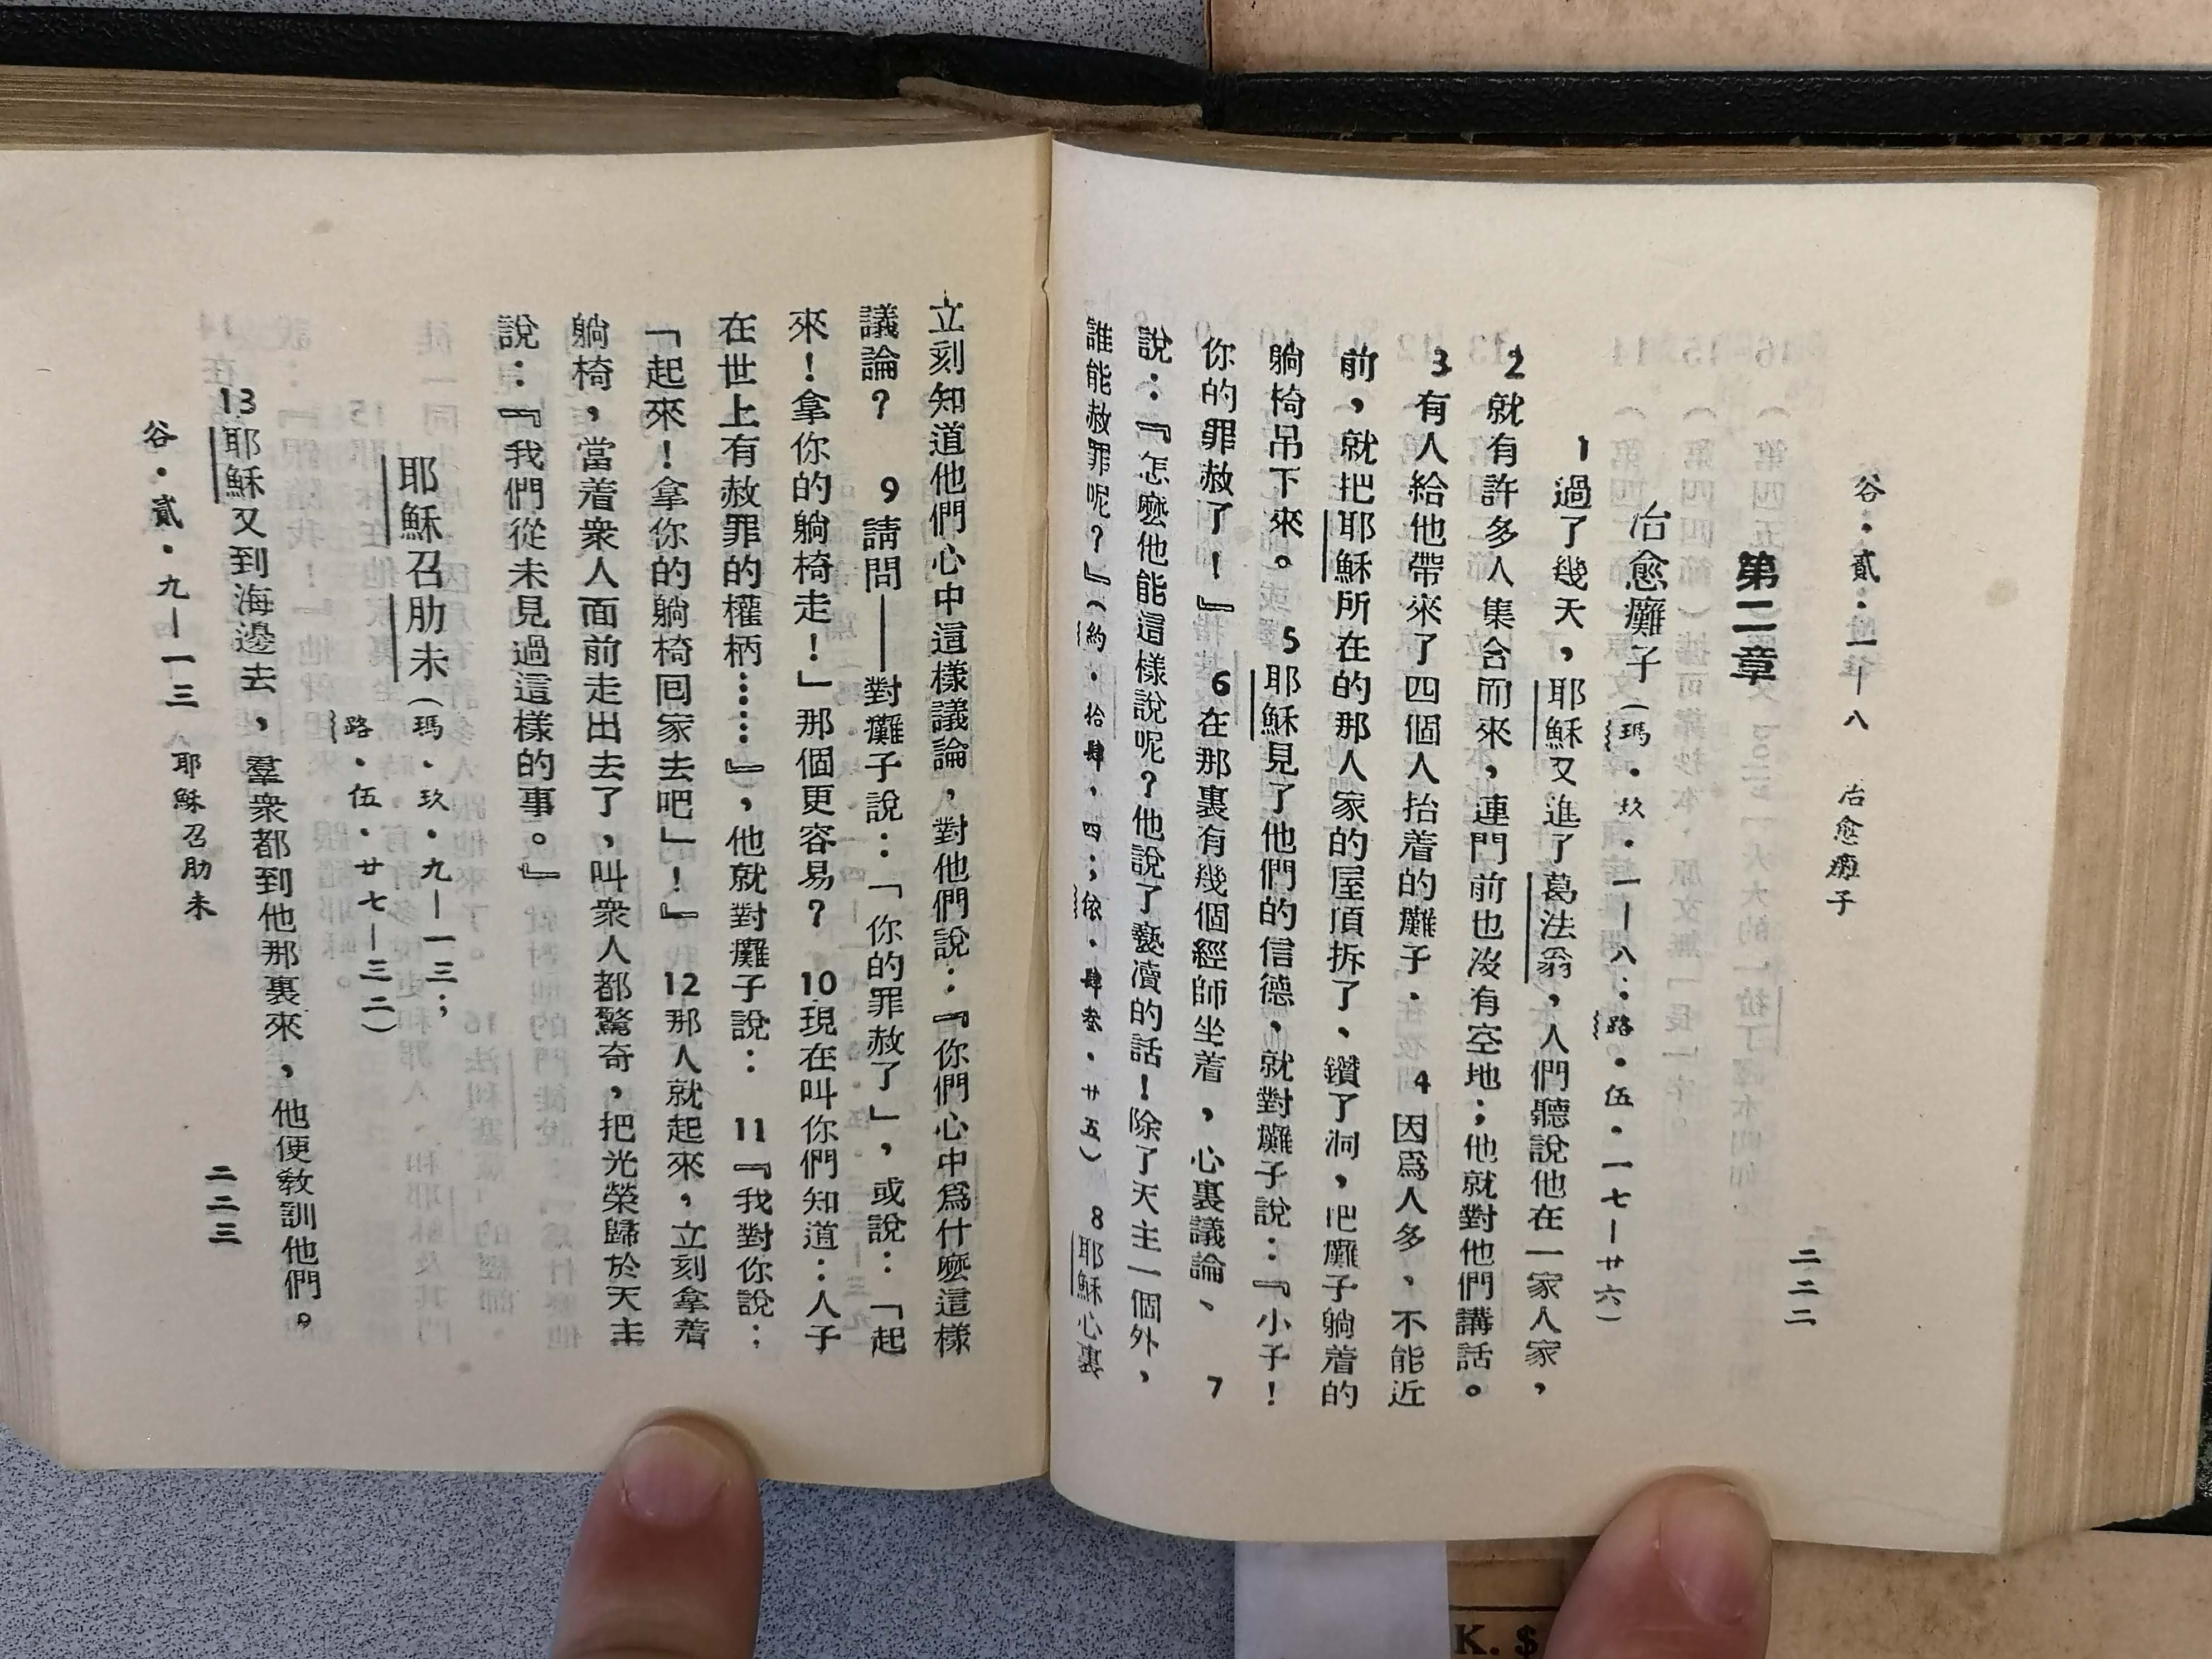 谷．貳．一—八　治愈癱子　二二二
第二章
治愈癱子（瑪．玖．一—八；路．伍．一七—廿六）
1過了幾天，耶穌又進了葛法翁，人們聽說他在一家人家，
2就有許多人集合而來，連門前也沒有空地；他就對他們講話。
3有人給他帶來了四個人抬着的癱子．　4因爲人多、不能近
前，就把耶穌所在的那人家的屋頂拆了、鑽了洞，把癱子躺着的
躺椅吊下來。　5耶穌見了他們的信德、就對癱子說：『小子！
你的罪赦了！』　6在那裏有幾個經師坐着，心裏議論、　7
說：『怎麼他能這樣說呢？他說了褻瀆的話！除了天主一個外，
誰能赦罪呢？』（約．拾肆，四；依．肆叁．廿五）　8耶穌心裏
立刻知道他們心中這樣議論，對他們說：『你們心中爲什麼這樣
議論？　9請問——對癱子說：「你的罪赦了」，或說：「起
來！拿你的躺椅走！」那個更容易？　10現在叫你們知道：人子
在世上有赦罪的權柄……』，他就對癱子說：　11『我對你說：
「起來！拿你的躺椅回家去吧」！』　12那人就起來，立刻拿着
躺椅，當着衆人面前走出去了，叫衆人都驚奇，把光榮歸於天主
說：『我們從未見過這樣的事。』
耶穌召肋未（瑪．玖．九—一三；
路．伍．廿七—三二）
13耶穌又到海邊去，羣衆都到他那裏來，他便教訓他們。
谷．貳．九—一三　耶穌召肋未　二二三
K. $